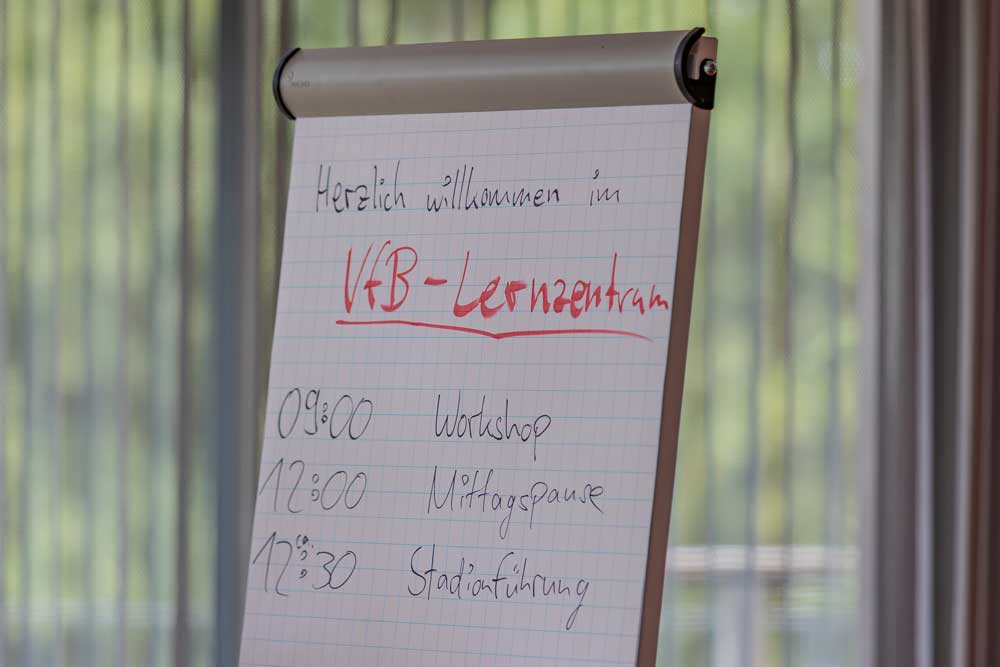 Herzlich willkommen im
VfB-Lernzentrum
09:00 Workshop
12:00 Mittagspause
ca.
12:30 Stadionführung